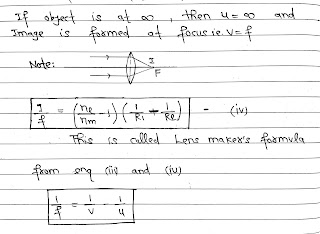 If object is at ∞, then u = ∞ and
Image is formed at focus ie. v = f
Note:
I
F
1/f = (nl/nm - 1) (1/R1 - 1/R2) - (iv)
This is called Lens maker's formula
from enq (iii) and (iv)
1/f = 1/v - 1/u